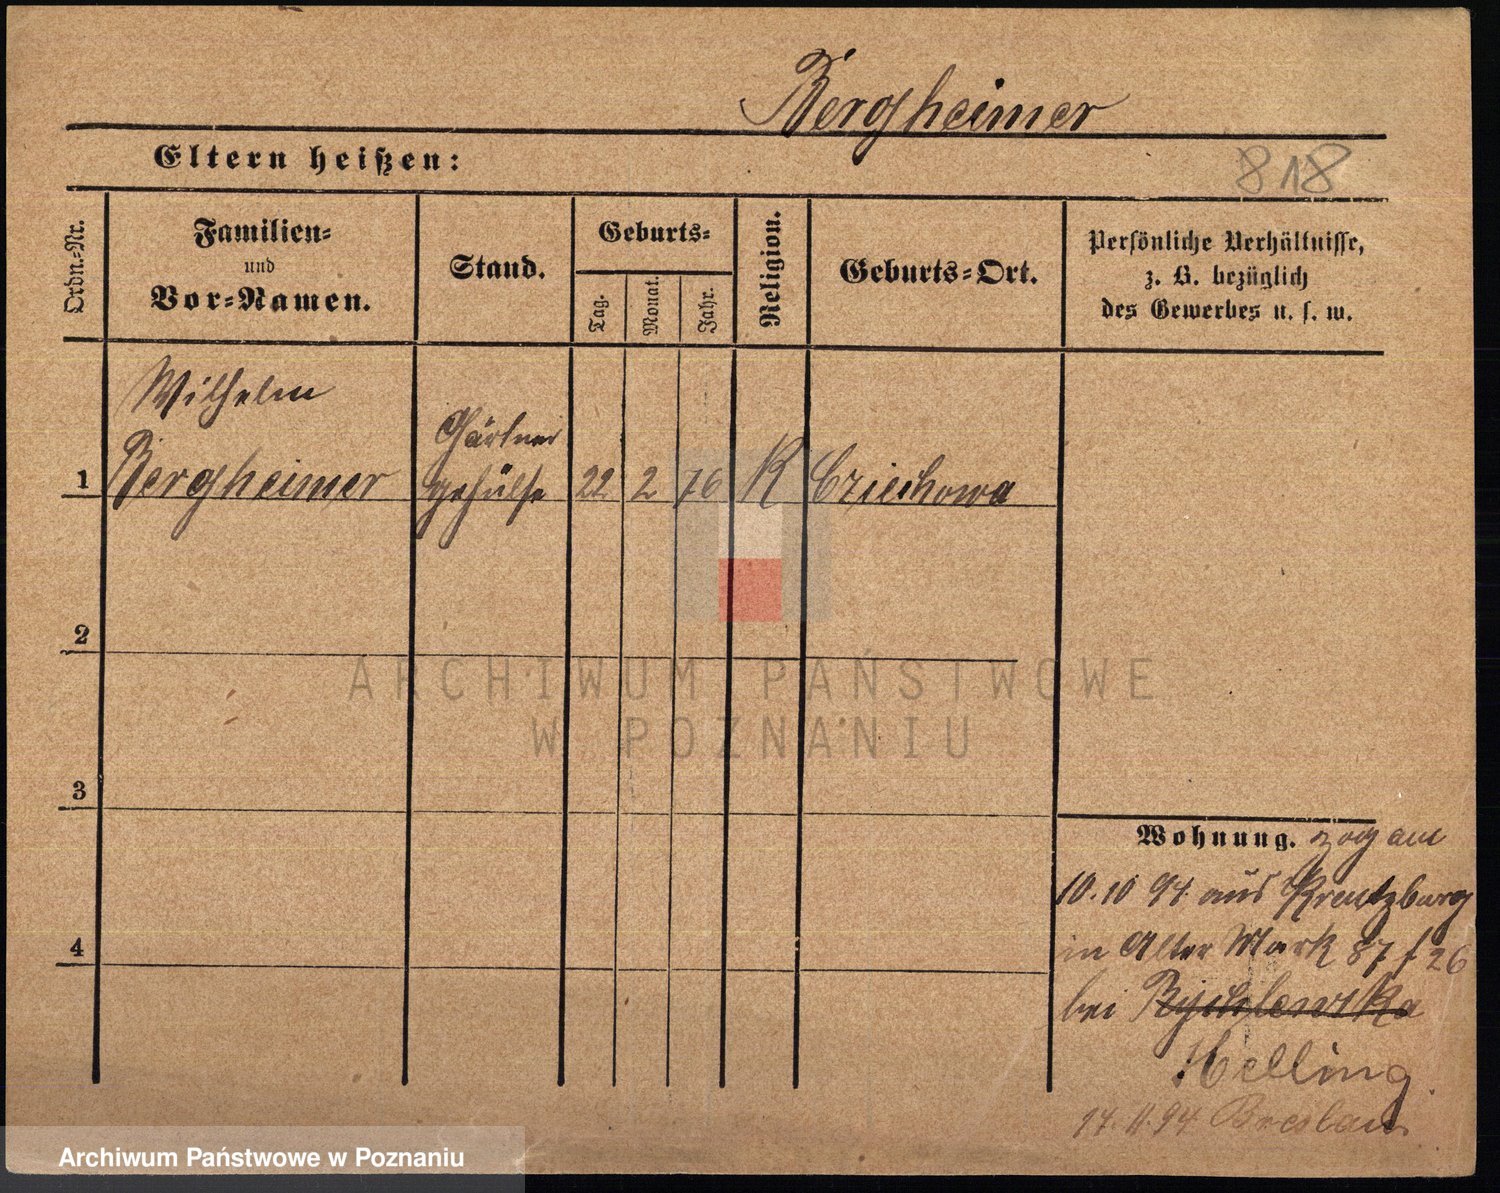 Bergheimer
Eltern heißen:
818
Ordn.-Nr.
Familien-
und
Vor-Namen.
Stand.
Geburts-
Tag.
Monat.
Jahr.
Religion.
Geburts-Ort.
Persönliche Verhältnisse,
z. B. bezüglich
des Gewerbes u. s. w.
Wilhelm
1 Bergheimer
Gärtner
gehülfe
22 2 76 K Cziechowa
2
ARCHIWUM PAŃSTWOWE
W POZNANIU
3
Wohnung. zog am
10.10 94 aus Kreutzburg
4
in Alter Mark 87 f 26
bei Rychlewska
Helling
17.11.94 Breslau
Archiwum Państwowe w Poznaniu